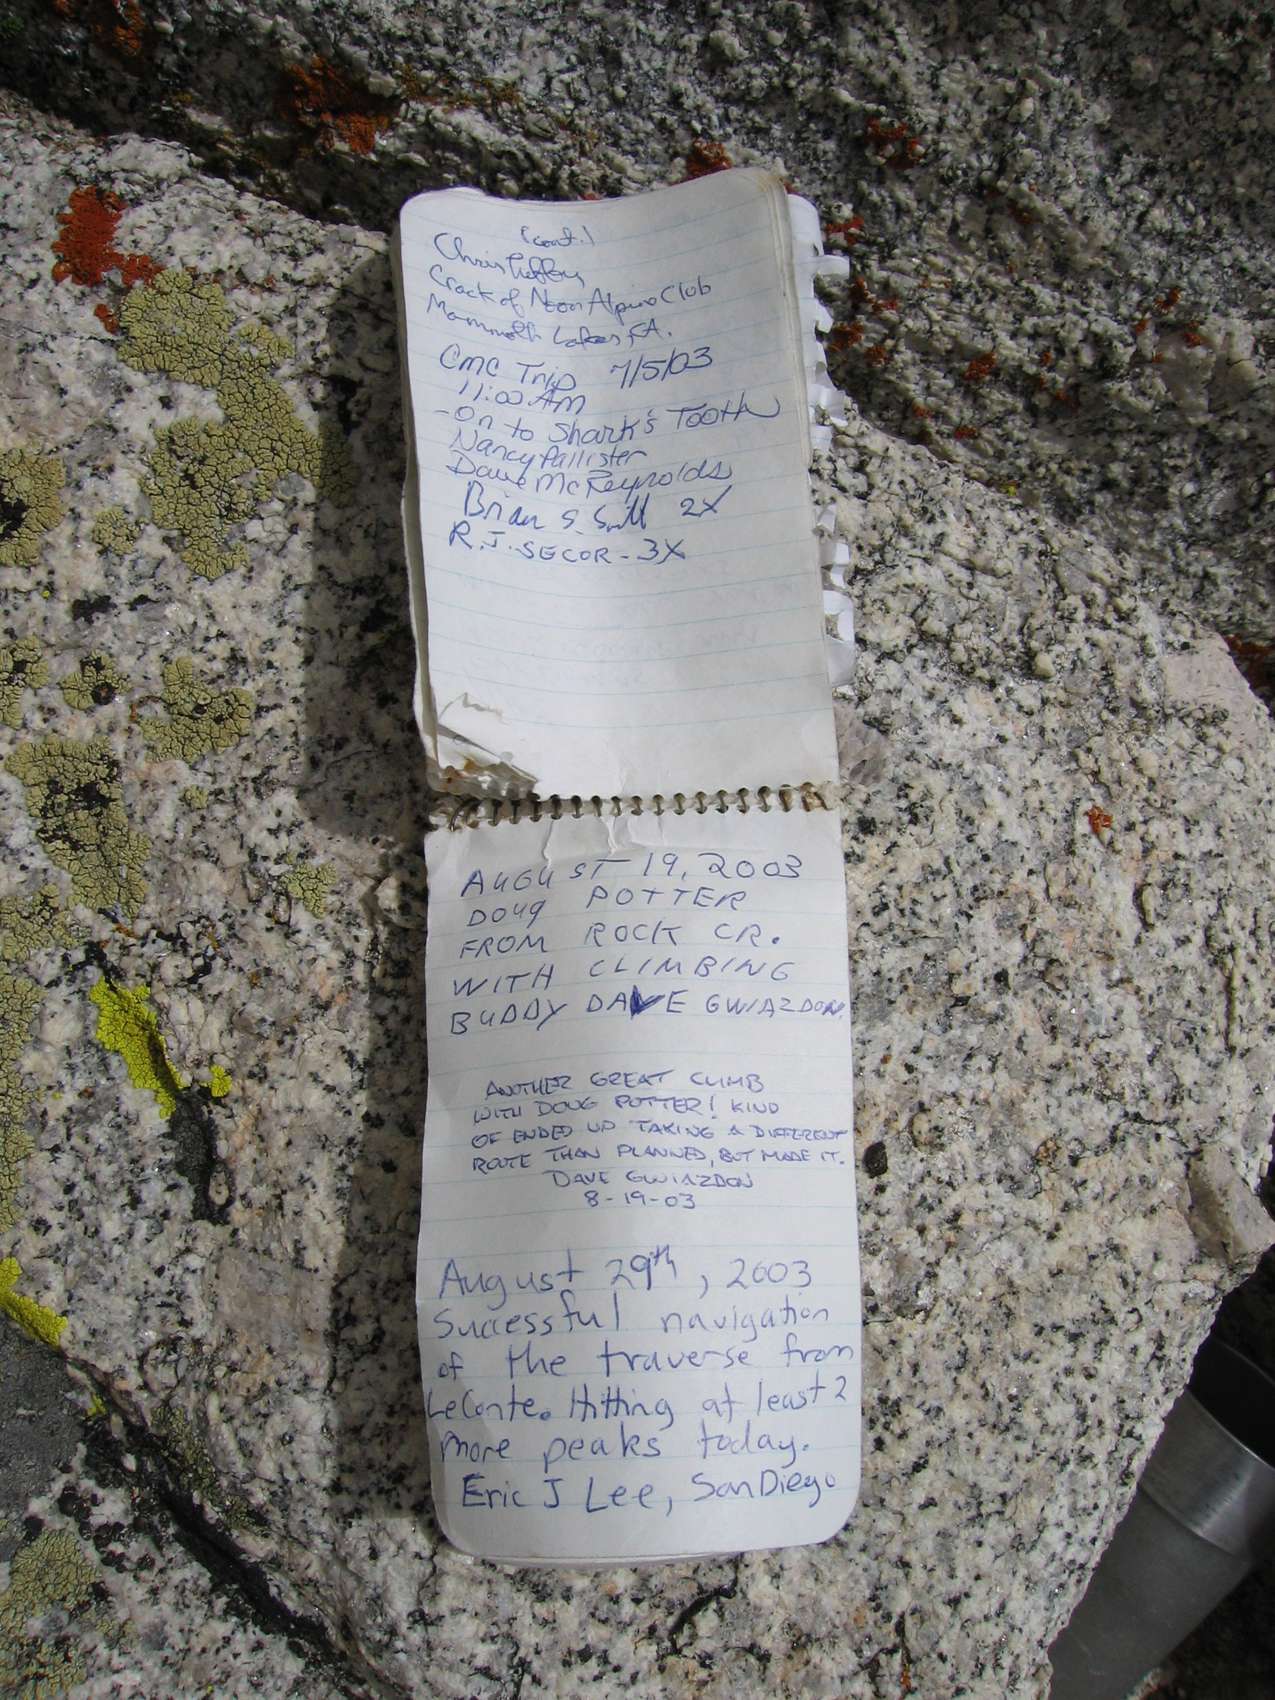 (cont.)
Chris
Crack of Noon Alpine Club
Mammoth Lakes, CA.
CMC Trip 7/5/03
11:00 AM
-on to Shark's Tooth
Nancy Pallister
Dave McReynolds
Brian S. Smith 2X
R.J. SECOR - 3X
AUGUST 19, 2003
DOUG POTTER
FROM ROCK CR.
WITH CLIMBING
BUDDY DAVE GWIAZDON.
ANOTHER GREAT CLIMB
WITH DOUG POTTER! KIND
OF ENDED UP TAKING A DIFFERENT
ROUTE THAN PLANNED, BUT MADE IT.
DAVE GWIAZDON
8-19-03
August 29th, 2003
Successful navigation
of the traverse from
LeConte. Hitting at least 2
more peaks today.
Eric J Lee, San Diego